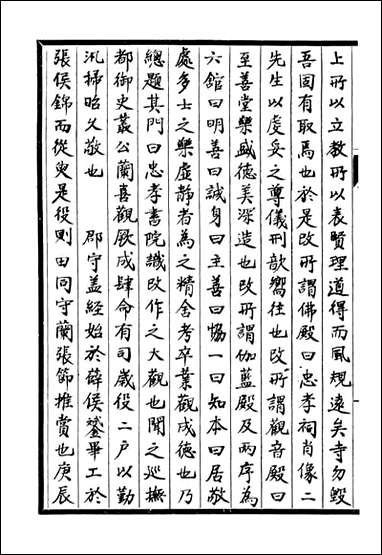 上所以立教所以表賢理道得而風規遠矣寺勿毀
吾固有取焉也於是改所謂佛殿曰忠孝祠肖像二
先生以虔妥之尊儀刑歆嚮往也改所謂觀音殿曰
至善堂樂盛德美深造也改所謂伽藍殿及兩序為
六舘曰明善曰誠身曰主善曰恊一曰知本曰居敬
處多士之樂虛靜者為之精舍考卒業觀成德也乃
總題其門曰忠孝書院識改作之大觀也聞之巡撫
都御史叢公蘭喜觀厥成肆命有司歲役二户以勤
汛掃昭久敬也　郡守盖經始於薛侯鎏畢工於
張侯錦而從臾是役則田同守蘭張節推賞也庚辰